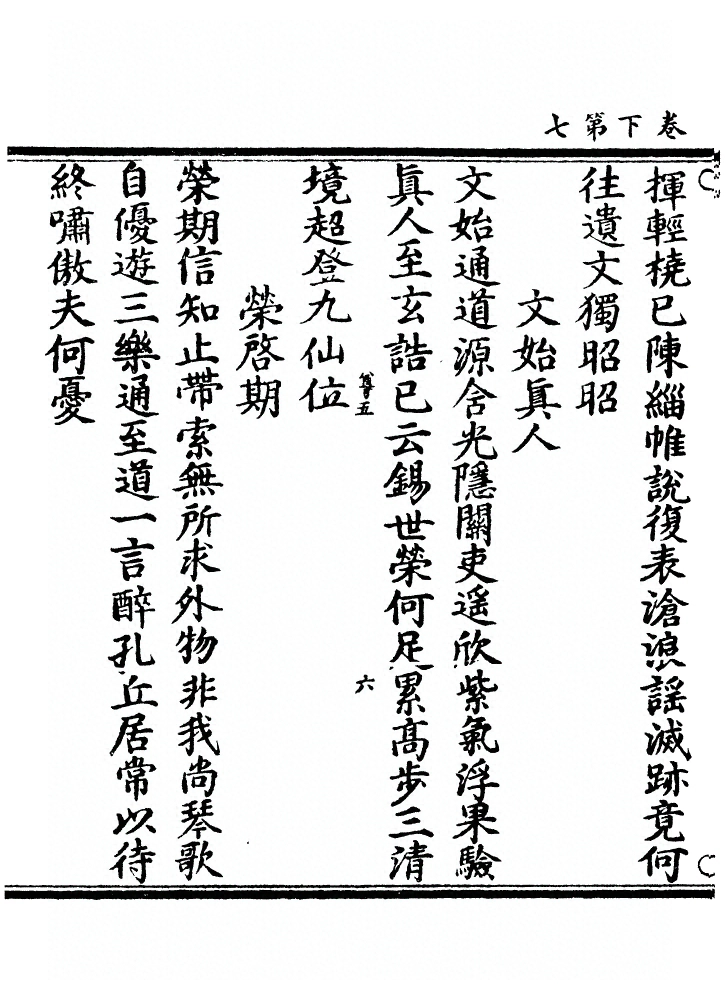 卷下第七
揮輕橈已陳緇帷說復表滄浪謡滅跡竟何
往遺文獨昭昭
文始眞人
文始通道源含光隱關吏遥欣紫氣浮果驗
眞人至玄誥已云錫世榮何足累高步三清
六
境超登九仙位
榮啓期
榮期信知止帶索無所求外物非我尚琴歌
自優遊三樂通至道一言醉孔丘居常以待
終嘯傲夫何憂